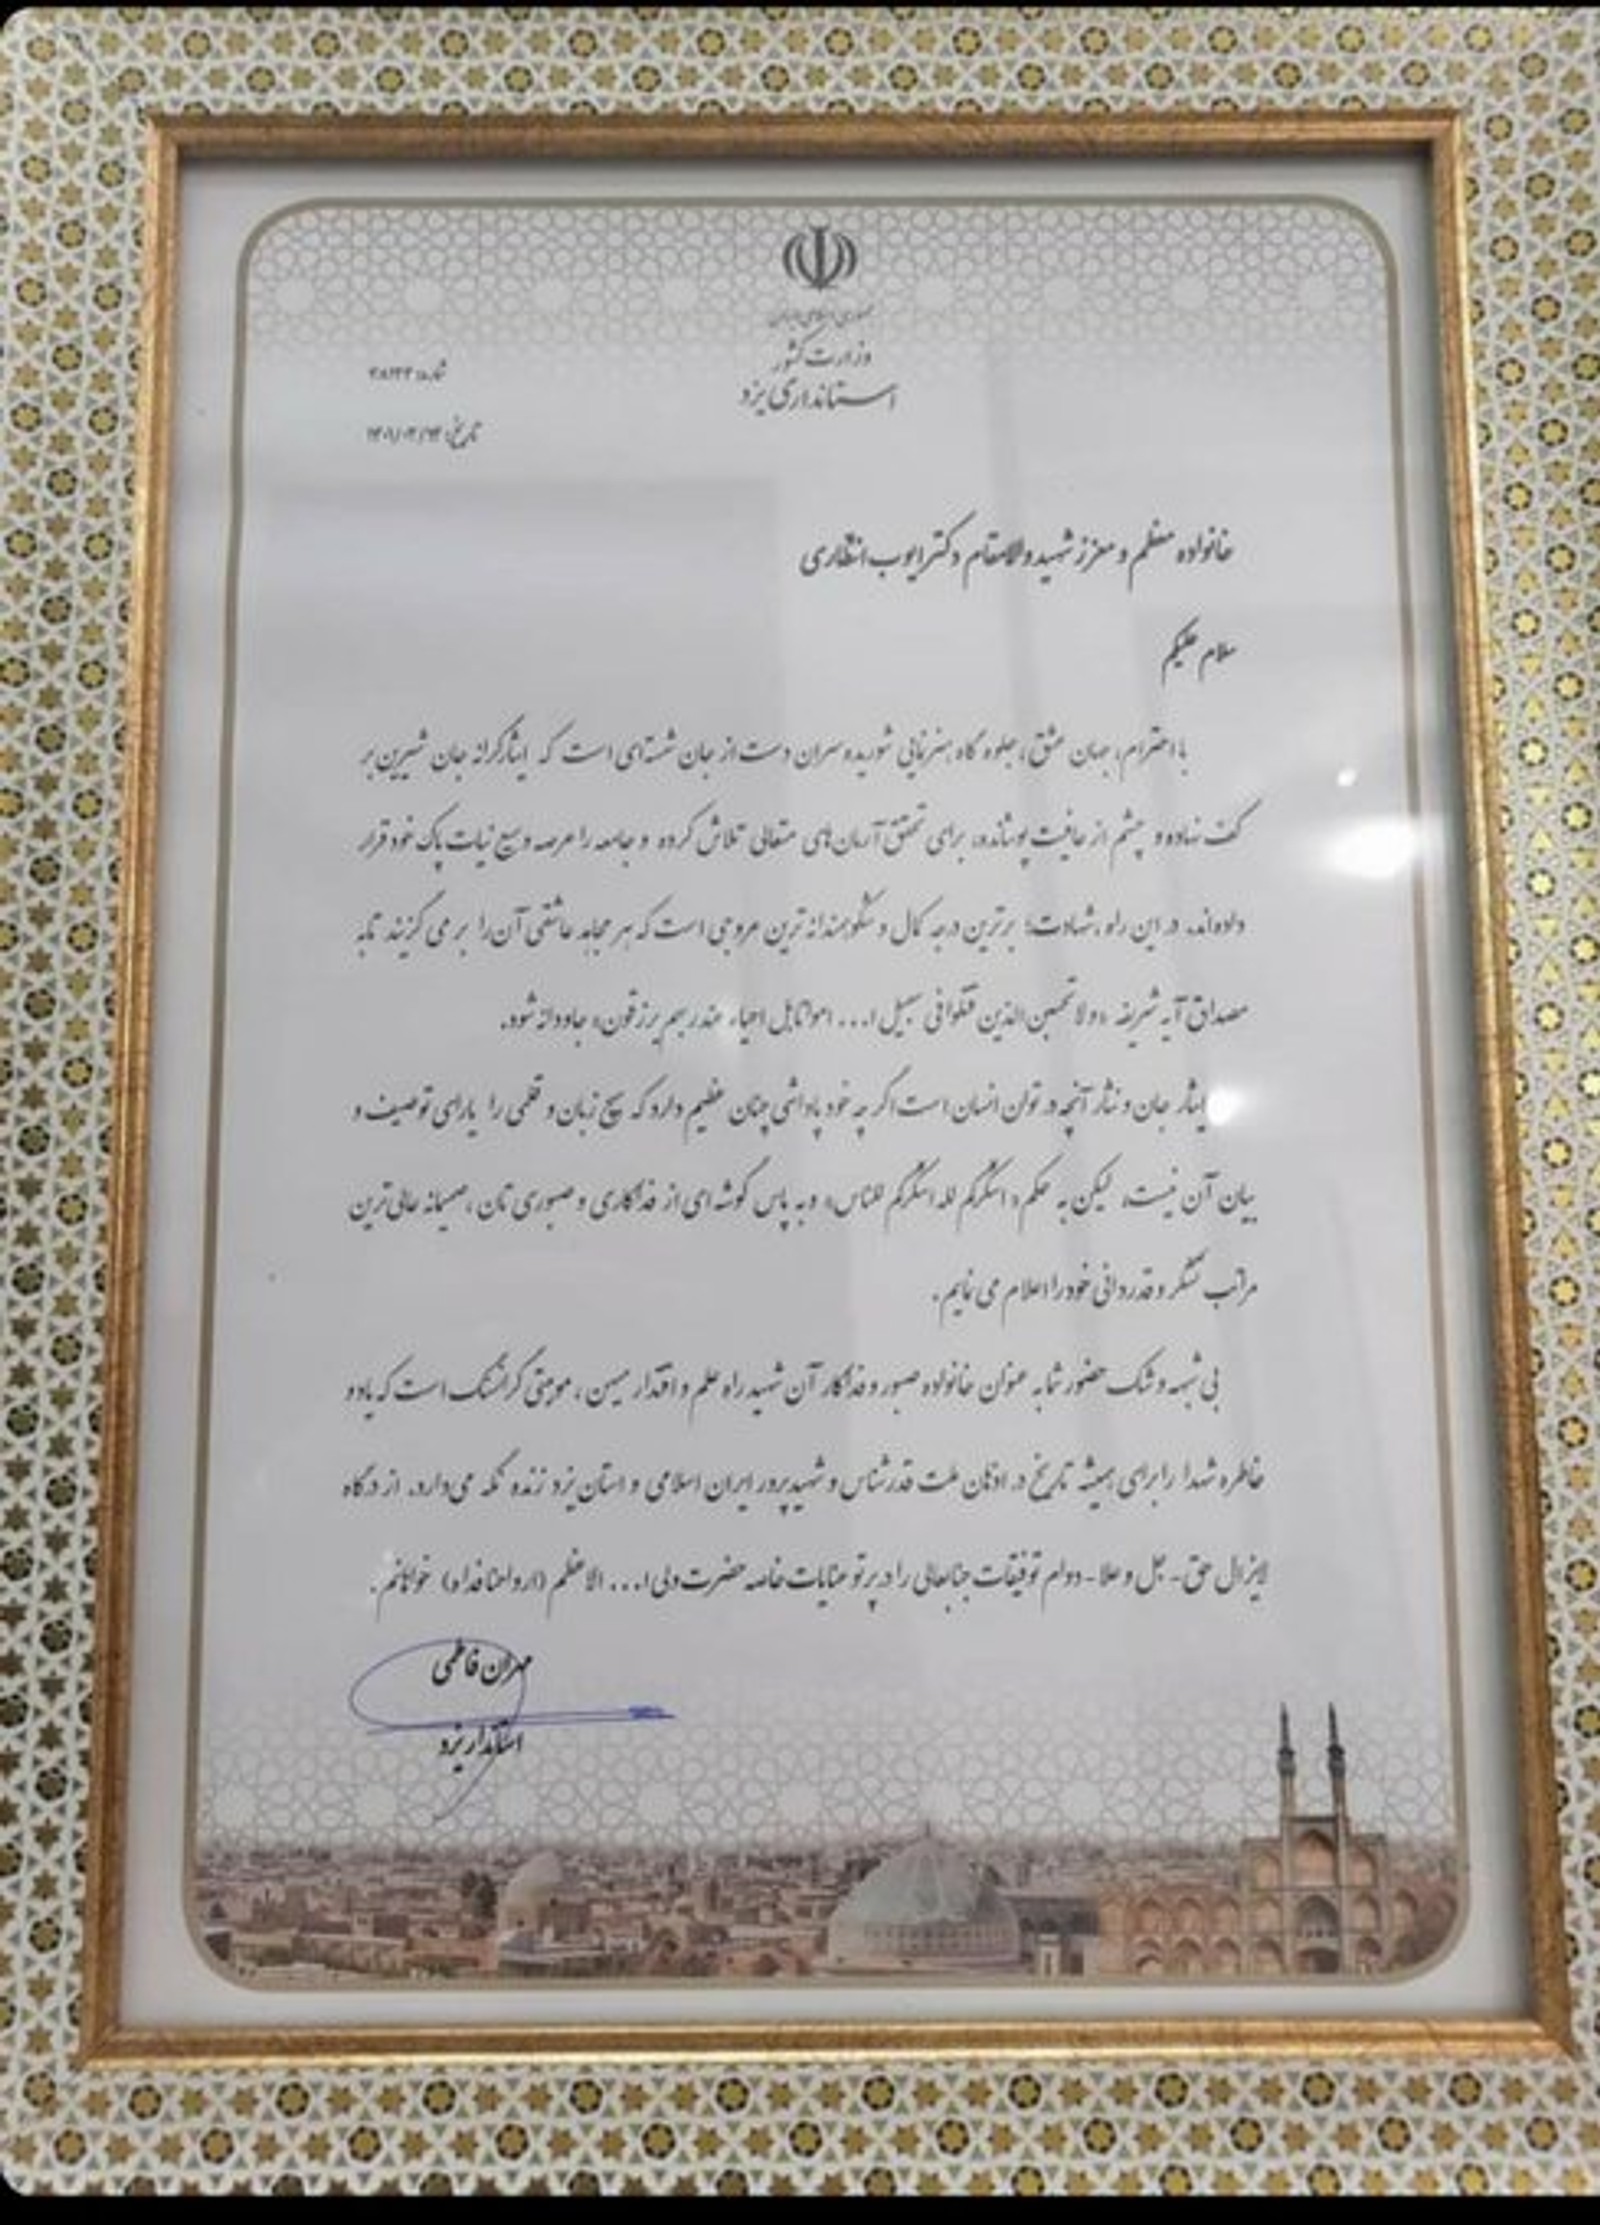 جمهوری اسلامی ایران
وزارت کشور
استانداری یزد
شماره:
تاریخ:
خانواده معظم و معزز شهید والامقام دکتر ایوب انتظاری
سلام علیکم
با احترام، جهان عشق، جلوه گاه هنرنمایی شوریده سران دست از جان شسته‌ای است که ایثارگرانه جان شیرین بر
کف نهاده و چشم از عافیت پوشانده، برای تحقق آرمان‌های متعالی تلاش کرده و جامعه را عرصه وسیع نیات پاک خود قرار
داده‌اند. در این راه، شهادت؛ برترین درجه کمال و شکوهمندانه ترین عروجی است که هر مجاهد عاشقی آن را بر می گزیند تا به
مصداق آیه شریفه «ولا تحسبن الذین قتلوا فی سبیل ا... امواتا بل احیاء عند ربهم یرزقون» جاودانه شود.
ایثار جان و نثار آنچه در توان انسان است اگر چه خود پاداشی چنان عظیم دارد که هیچ زبان و قلمی را یارای توصیف و
بیان آن نیست، لیکن به حکم «اشکرکم لله اشکرکم للناس» و به پاس گوشه ای از فداکاری و صبوری تان، صمیمانه عالی ترین
مراتب تشکر و قدردانی خود را اعلام می نمایم.
بی شبهه و شک حضور شما به عنوان خانواده صبور و فداکار آن شهید راه علم و اقتدار میهن، موهبتی گرانسنگ است که یاد و
خاطره شهدا را برای همیشه تاریخ در اذهان ملت قدرشناس و شهیدپرور ایران اسلامی و استان یزد زنده نگه می‌دارد. از درگاه
لایزال حق - جل و علا - دوام توفیقات جنابعالی را در پرتو عنایات خاصه حضرت ولی ا... الاعظم (ارواحنا فداه) خواهانم.
مهران فاطمی
استاندار یزد